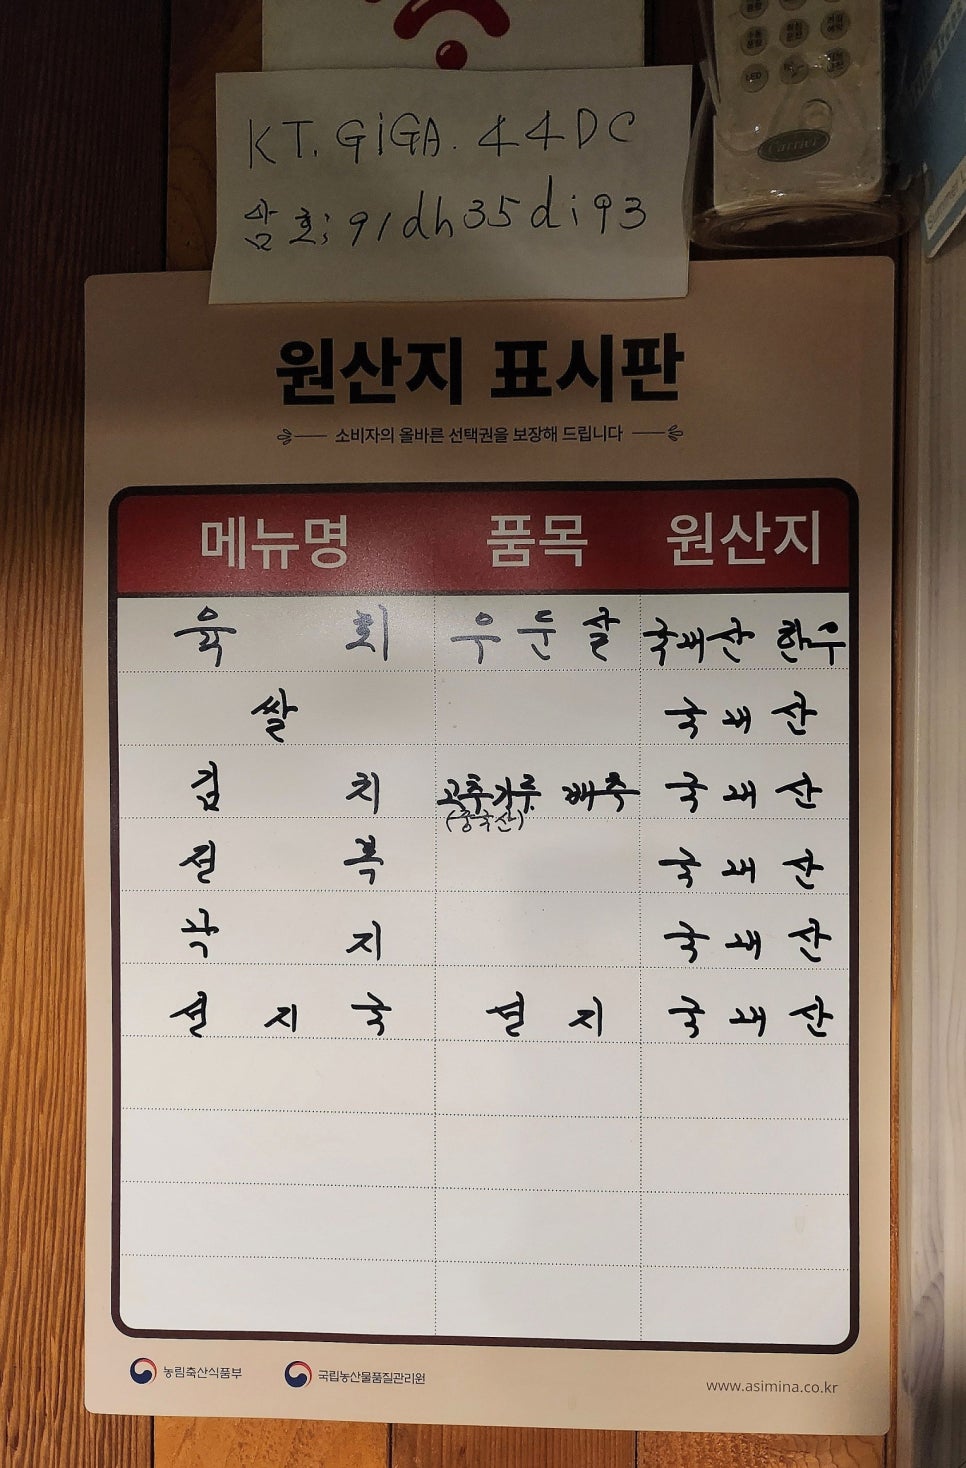 KT.GiGA.44DC
암호:91dh35di93
Carrier
원산지 표시판
소비자의 올바른 선택권을 보장해 드립니다
메뉴명 품목 원산지
육회 우둔살 국내산 한우
쌀 국내산
김치 고추가루 배추 국내산
(중국산)
천엽 국내산
낙지 국내산
선지국 선지 국내산
농림축산식품부 국립농산물품질관리원 www.asimina.co.kr